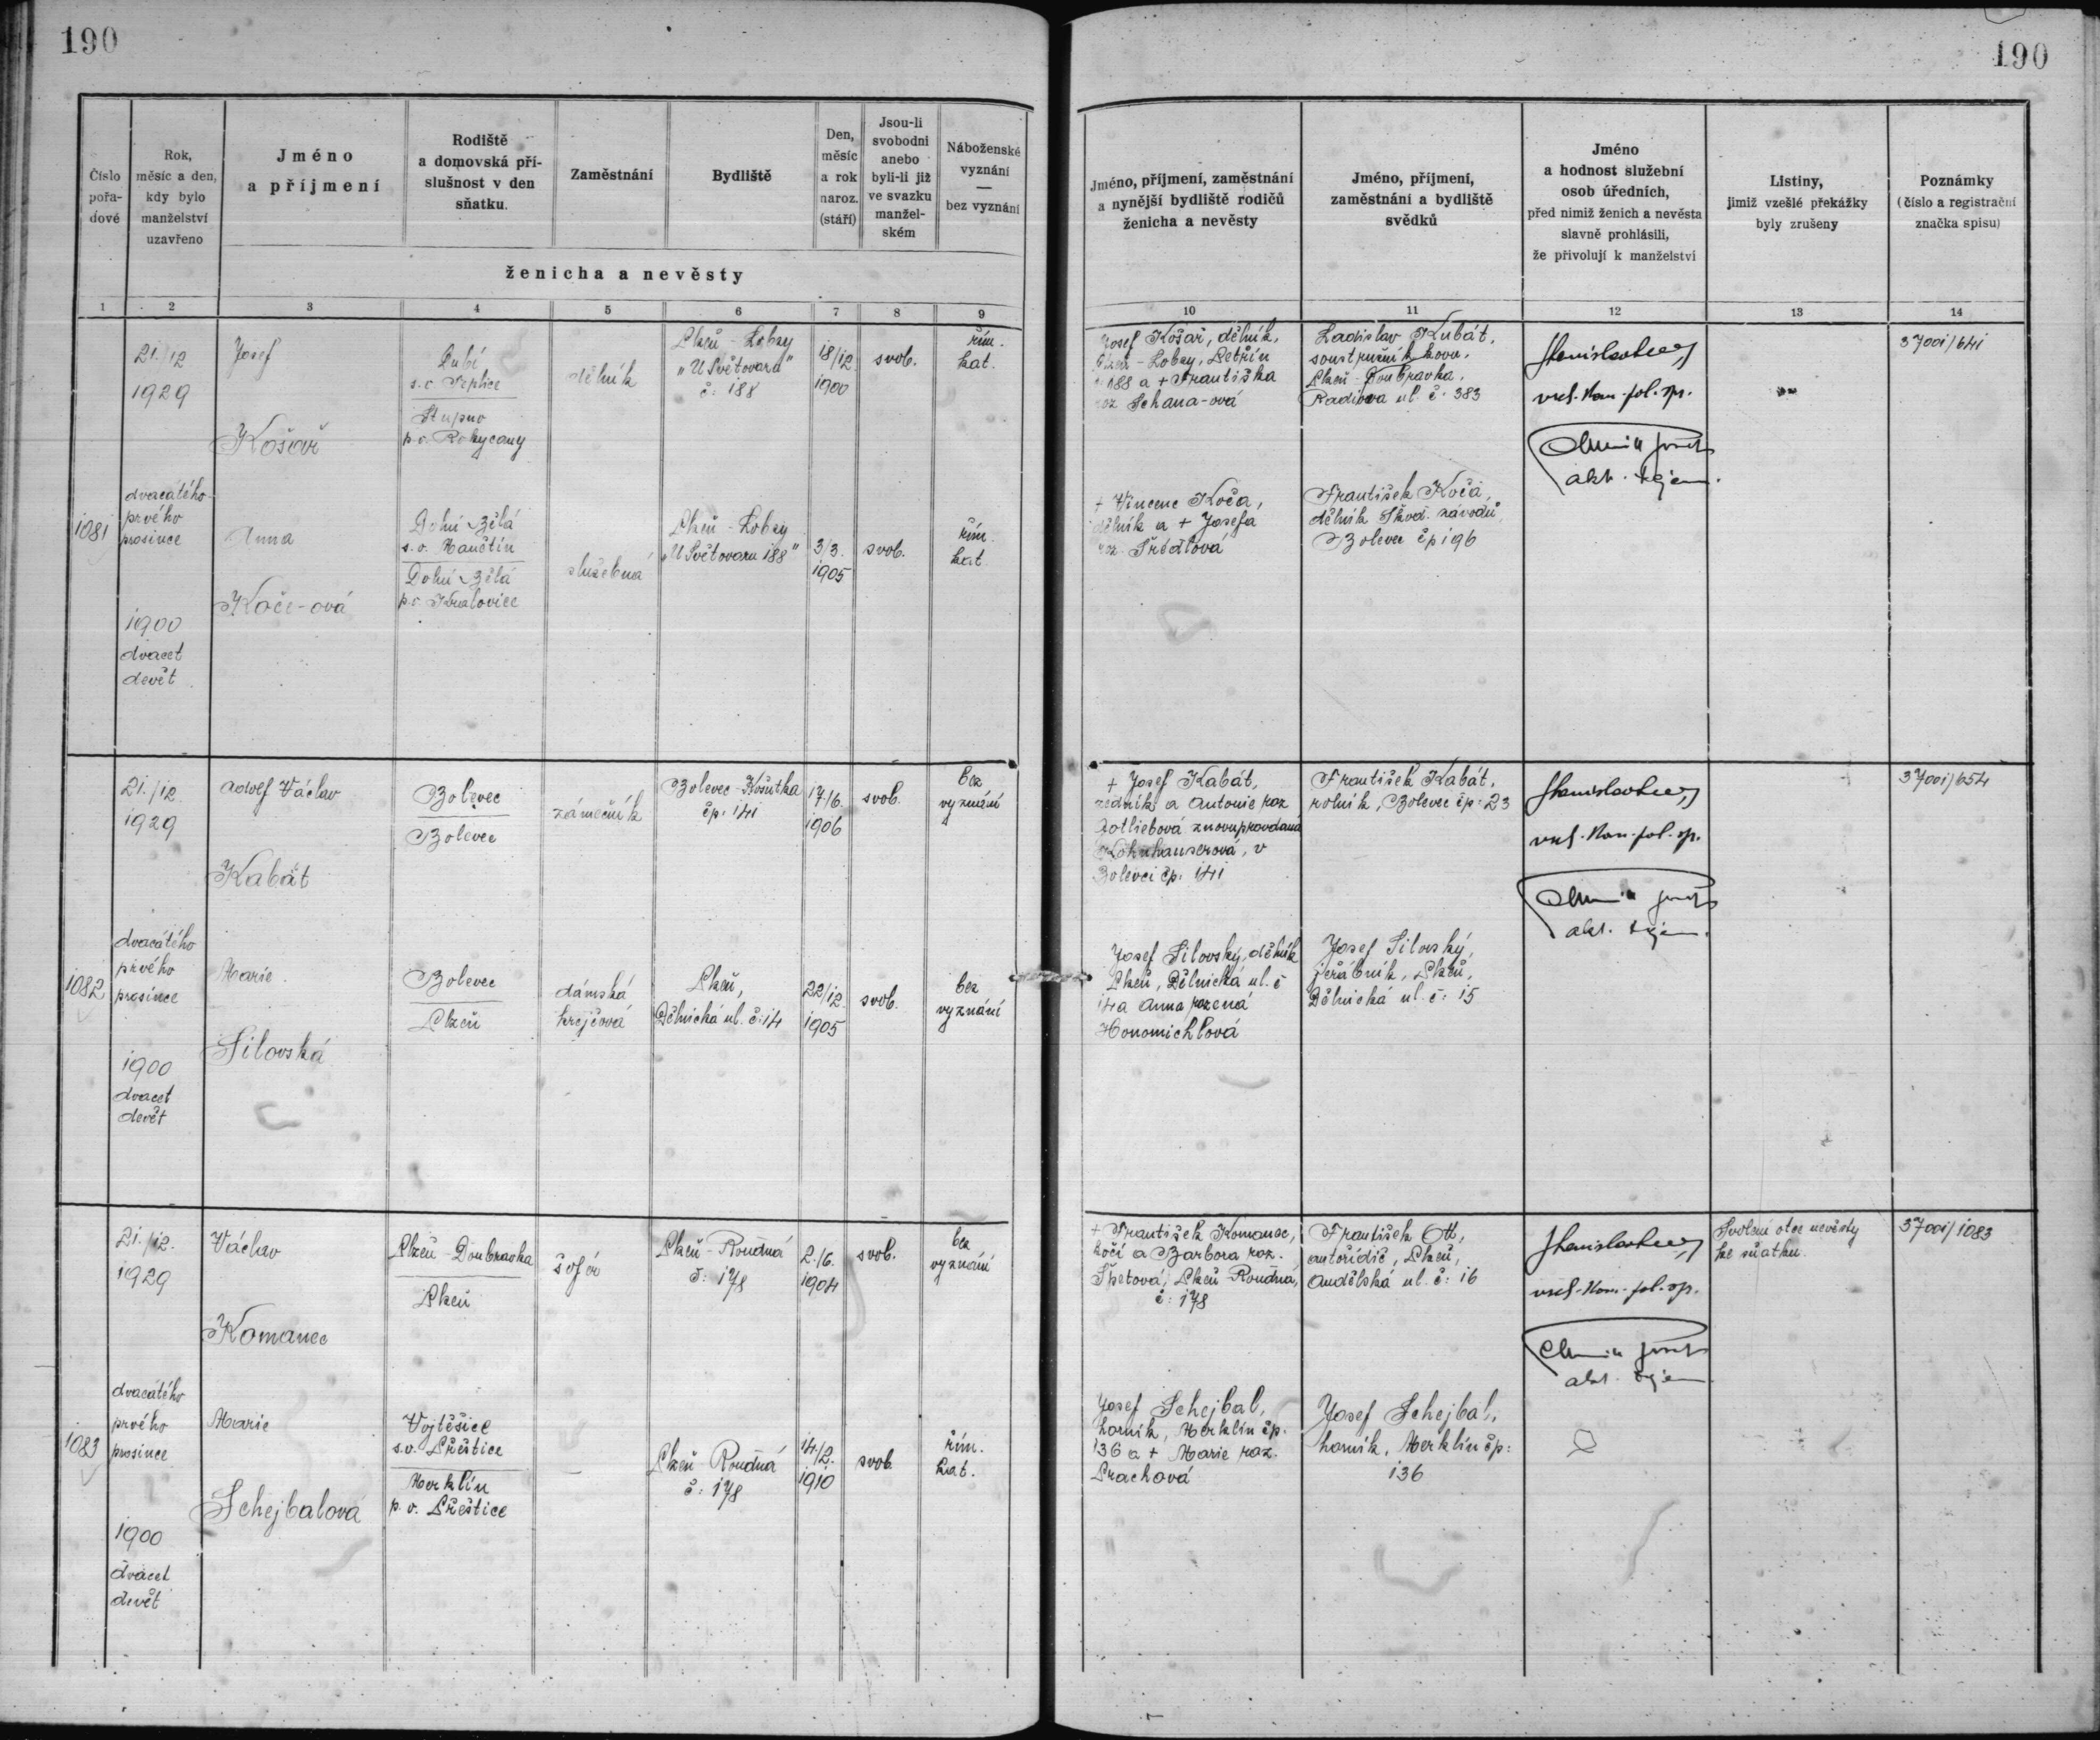 190
190
Číslo pořa-dové
Rok, měsíc a den, kdy bylo manželství uzavřeno
Jméno a příjmení
Rodiště a domovská pří-slušnost v den sňatku.
Zaměstnání
Bydliště
Den, měsíc a rok naroz. (stáří)
Jsou-li svobodni anebo byli-li již ve svazku manžel-ském
Náboženské vyznání — bez vyznání
ženicha a nevěsty
Jméno, příjmení, zaměstnání a nynější bydliště rodičů ženicha a nevěsty
Jméno, příjmení, zaměstnání a bydliště svědků
Jméno a hodnost služební osob úředních, před nimiž ženich a nevěsta slavně prohlásili, že přivolují k manželství
Listiny, jimiž vzešlé překážky byly zrušeny
Poznámky (číslo a registrační značka spisu)
1 2 3 4 5 6 7 8 9 10 11 12 13 14
1081
21./12
1929
dvacátého
prvého
prosince
1900
dvacet
devět
Josef
Košař
Dubí
s. o. Teplice
Stupno
p. o. Rokycany
dělník
Plzeň - Lobzy
„U Světovaru"
č: 188
18/12.
1900
svob.
řím.
kat.
Josef Košař, dělník,
Plzeň - Lobzy, Letřín
188 a + Františka
roz. Schana-ová
Ladislav Kubát,
soustružník kovu,
Plzeň - Doubravka,
Radiova ul. č. 383
vrch. kom. pol. spr.
37001/641
Anna
Koče-ová
Dolní Bělá
s. o. Manětín
Dolní Bělá
p. o. Kralovice
služebná
Plzeň - Lobzy
„U Světovaru 188"
3/3.
1905
svob.
řím.
kat.
+ Vincenc Koča,
dělník a + Josefa
roz.
František Koča,
dělník Škod. závodů,
Bolevec čp 196
1082
21./12.
1929
dvacátého
prvého
prosince
1900
dvacet
devět
Adolf Václav
Kabát
Bolevec
Bolevec
zámečník
Bolevec - Košutka
čp. 141
17/6.
1906
svob.
bez
vyznání
+ Josef Kabát,
zedník a Antonie roz
Gotliebová znovuprovdaná
v
Bolevci čp. 141
František Kabát,
rolník, Bolevec čp: 23
vrch. kom. pol. sp.
37001/654
Marie
Silovská
Bolevec
Plzeň
dámská
krejčová
Plzeň,
Dělnická ul. č: 14
22/12.
1905
svob.
bez
vyznání
Josef Silovský, dělník
Plzeň, Dělnická ul. č
14 a Anna rozená
Honomichlová
Josef Silovský,
jeřábník, Plzeň,
Dělnická ul. č: 15
1083
21./12.
1929
dvacátého
prvého
prosince
1900
dvacet
devět
Václav
Komanec
Plzeň - Doubravka
Plzeň
šofér
Plzeň - Roudná
č: 178
2./6.
1904
svob.
bez
vyznání
+ František Komanec,
kočí a Barbora roz.
Plzeň - Roudná,
č: 178
František Ott,
autořidič, Plzeň,
Andělská ul. č: 16
vrch. kom. pol. sp.
Svolení otce nevěsty
ke sňatku.
37001/1083
Marie
Schejbalová
Vojtěšice
s. o. Přeštice
Merklín
p. o. Přeštice
Plzeň - Roudná
č: 178
14./2.
1910
svob.
řím.
kat.
Josef Schejbal,
horník, Merklín čp.
136 a + Marie roz.
Prachová
Josef Schejbal,
horník, Merklín čp:
136